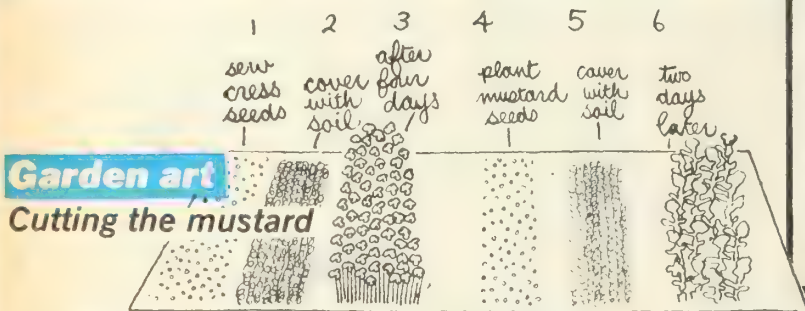 1 2 3 4 5 6
sew
cress
seeds
cover
with
soil
after
four
days
plant
mustard
seeds
cover
with
soil
two
days
later
Garden art
Cutting the mustard